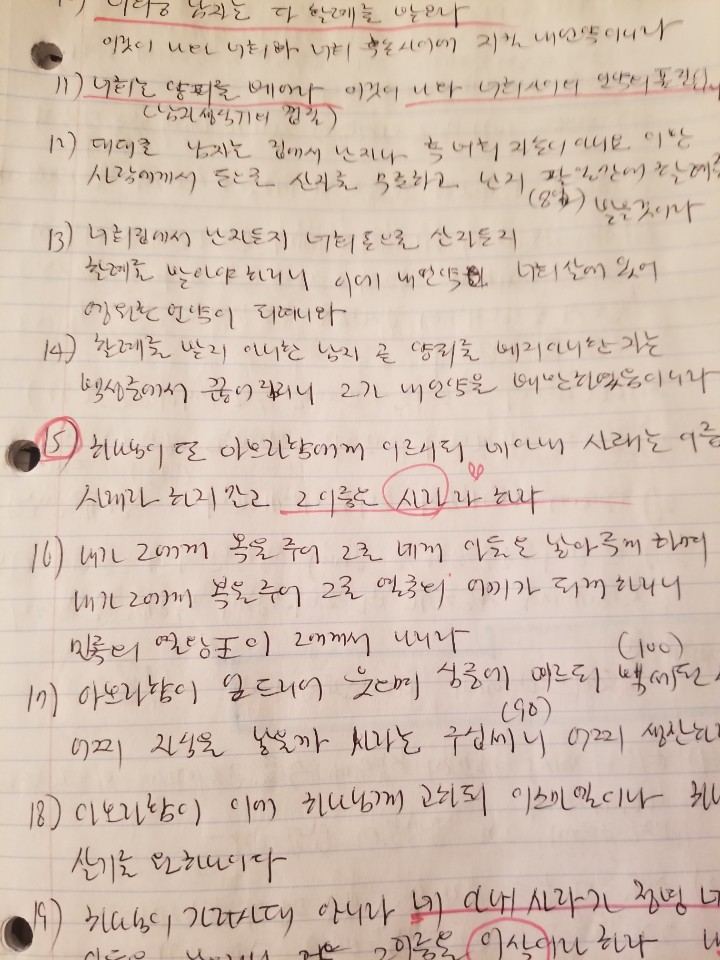 남자는 다 할례를 받으라
이것이 나와 너희와 너희 후손사이에 지킬 내언약이니라
11) 너희는 양피를 베어라 이것이 나와 너희사이의 언약의 표징
(남자생식기의 껍질)
12) 대대로 남자는 집에서 난자나 혹 너희 자손이 아니요 이방
사람에게서 돈으로 산자를 무론하고 난지 팔일만에 할례를
(8일) 받을것이라
13) 너희집에서 난자든지 너희돈으로 산자든지
할례를 받아야 하리니 이에 내언약이 너희살에 있어
영원한 언약이 되려니와
14) 할례를 받지 아니한 남자 곧 양피를 베지아니한 자는
백성중에서 끊어지리니 그가 내언약을 배반하였음이니라
15) 하나님이 또 아브라함에게 이르시되 네아내 사래는 이름
사래라 하지말고 그이름은 사라라 하라
16) 내가 그에게 복을 주어 그로 네게 아들을 낳아주게 하며
내가 그에게 복을주어 그로 열국의 어미가 되게 하리니
민족의 열왕도 이 그에게서 나리라
(100)
17) 아브라함이 엎드리어 웃으며 심중에 이르되 백세된
(90)
어찌 자식을 낳을까 사라는 구십세니 어찌 생산하
18) 아브라함이 이에 하나님께 고하되 이스마엘이나 하
살기를 원하나이다
19) 하나님이 가라사대 아니라 네 아내 사라가 정녕 네
그이름을 이삭이라 하라 내